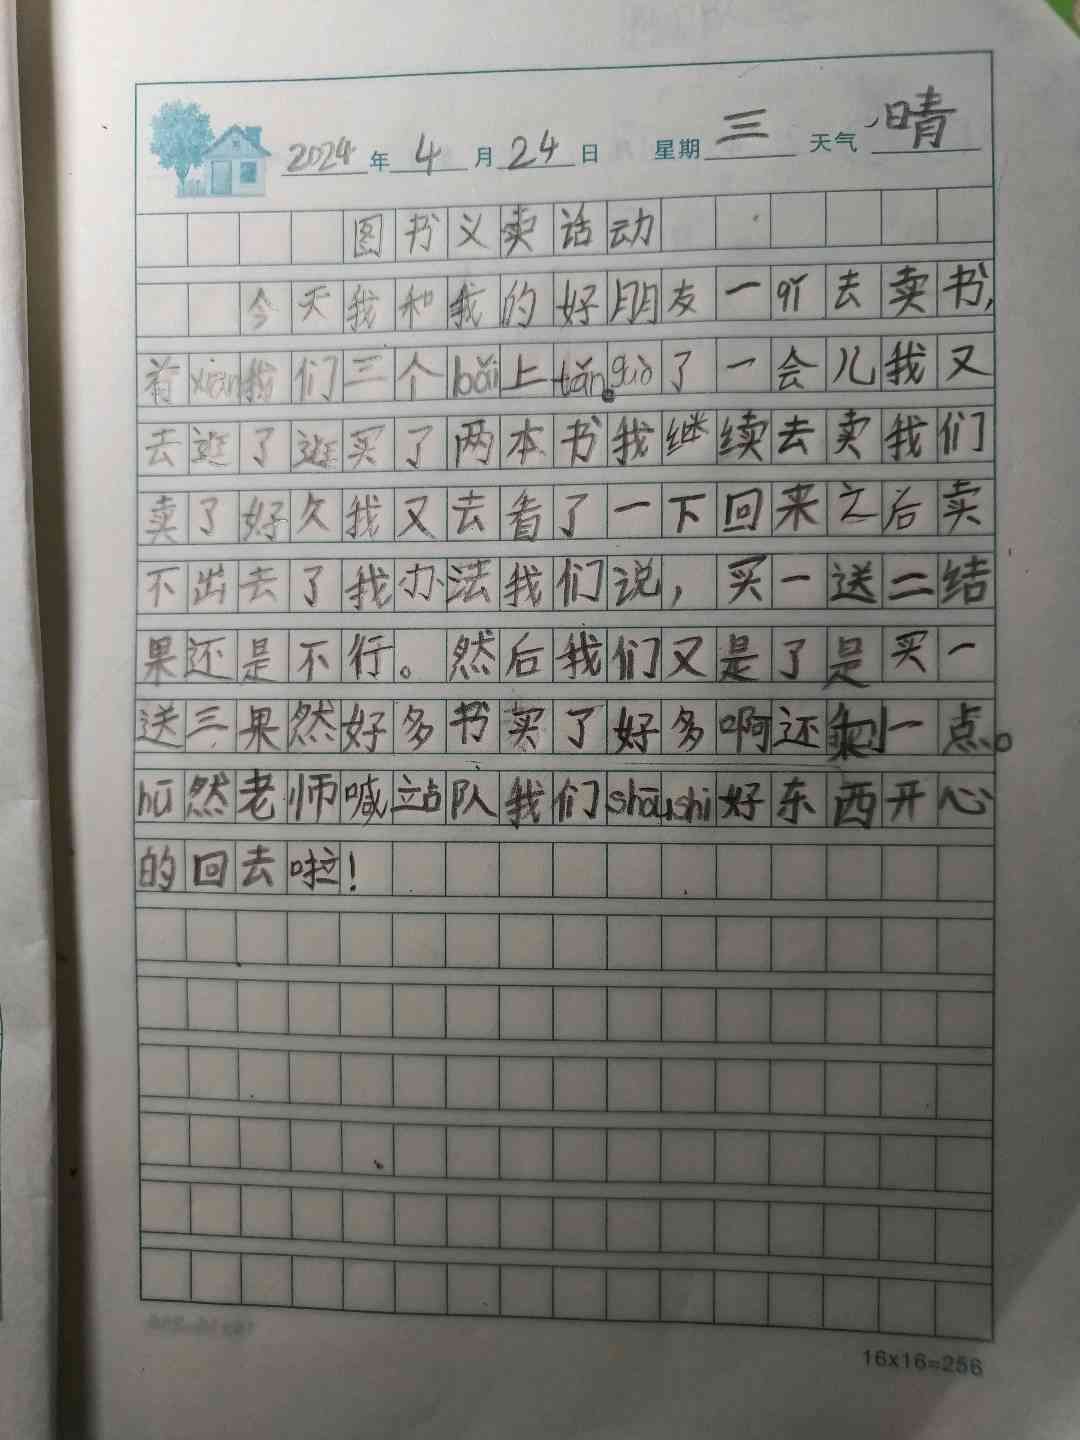 2024年4月24日 星期三 天气晴
图书义卖活动
今天我和我的好朋友一听去卖书,
着xiān我们三个bǎi上tān。guò了一会儿我又
去逛了逛买了两本书我继续去卖我们
卖了好久我又去看了一下回来之后卖
不出去了我办法我们说,买一送二结
果还是不行。然后我们又是了是买一
送三果然好多书买了好多啊还剩一点。
hū然老师喊站队我们shōushi好东西开心
的回去啦!
16x16=256